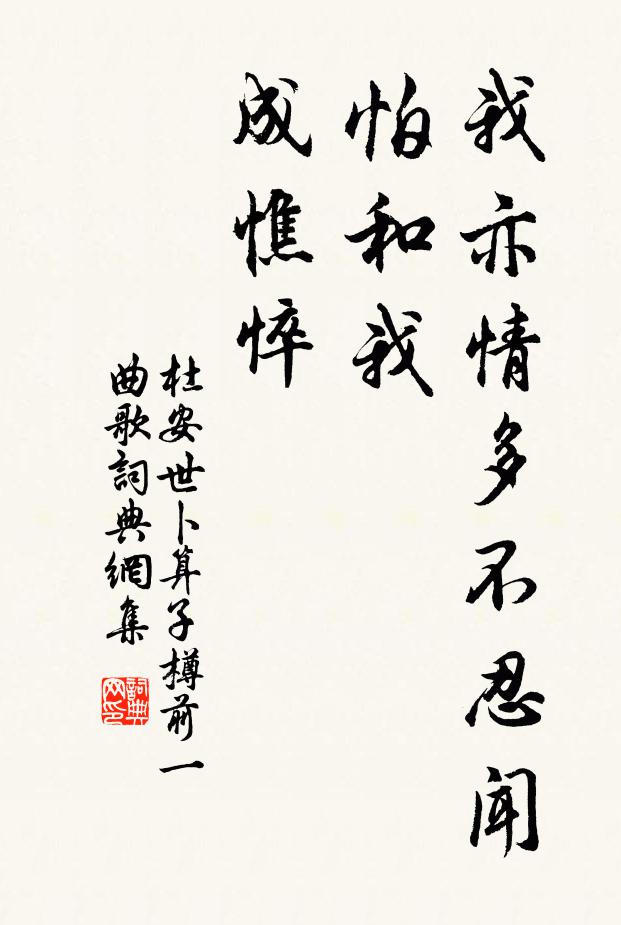 我亦情多不忍闻
怕和我
成憔悴
杜安世卜算子樽前一
曲歌詞典網集
詞典
网印